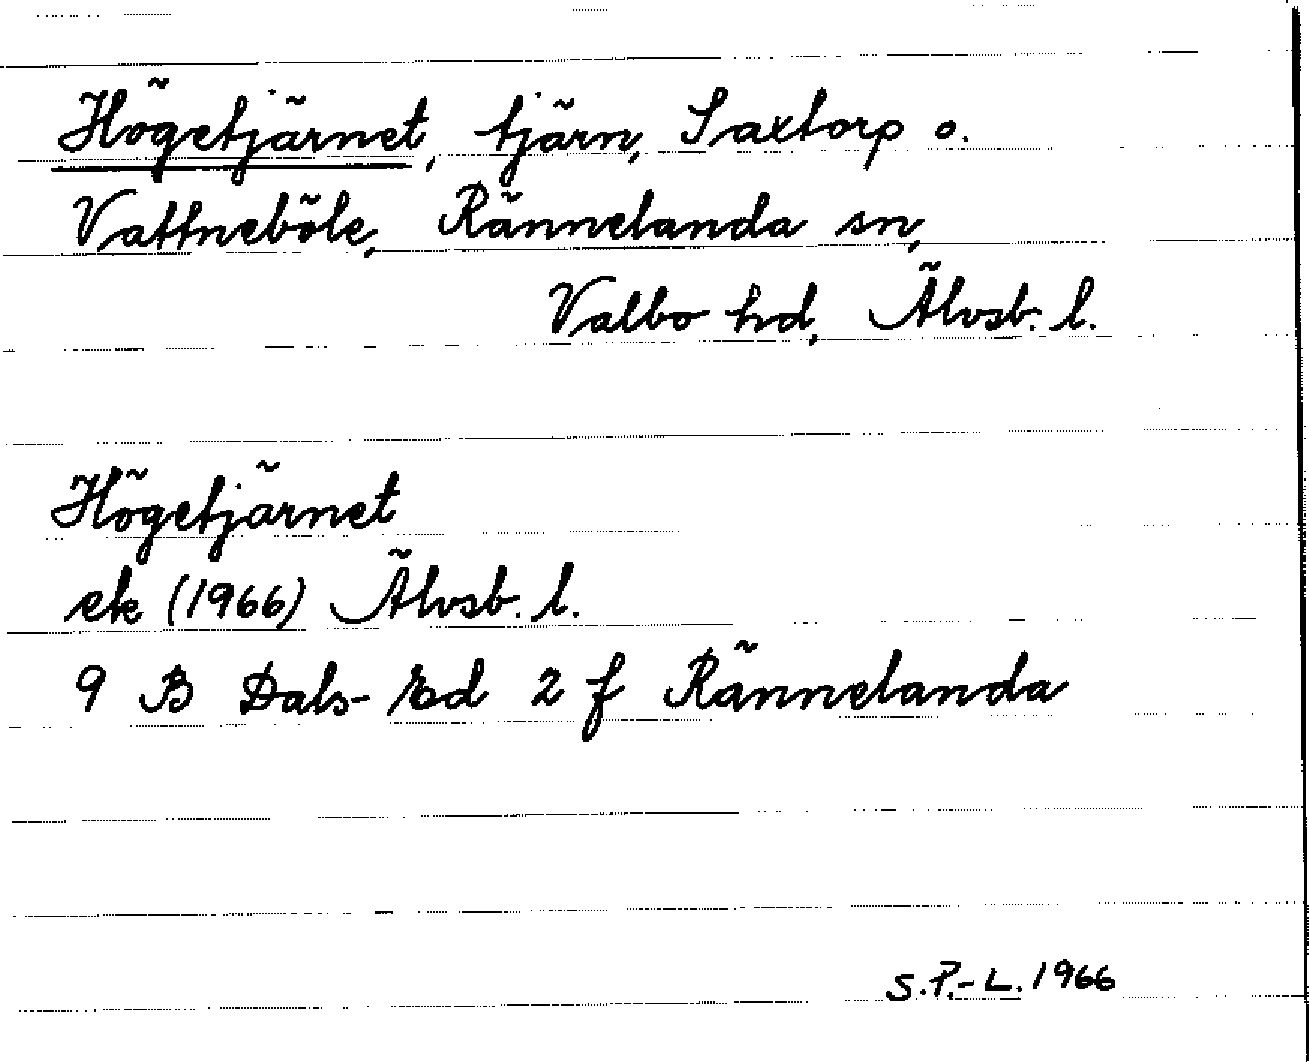 Högetjärnet, tjärn, Saxtorp o.
Vattneböle, Rännelanda sn,
Valbo hd, Älvsb. l.
Högetjärnet
ek (1966) Älvsb. l.
9 B Dals-Ed 2 f Rännelanda
S.P.-L. 1966